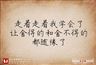 走着走着我学会了
让舍得的和舍不得的
都随缘了